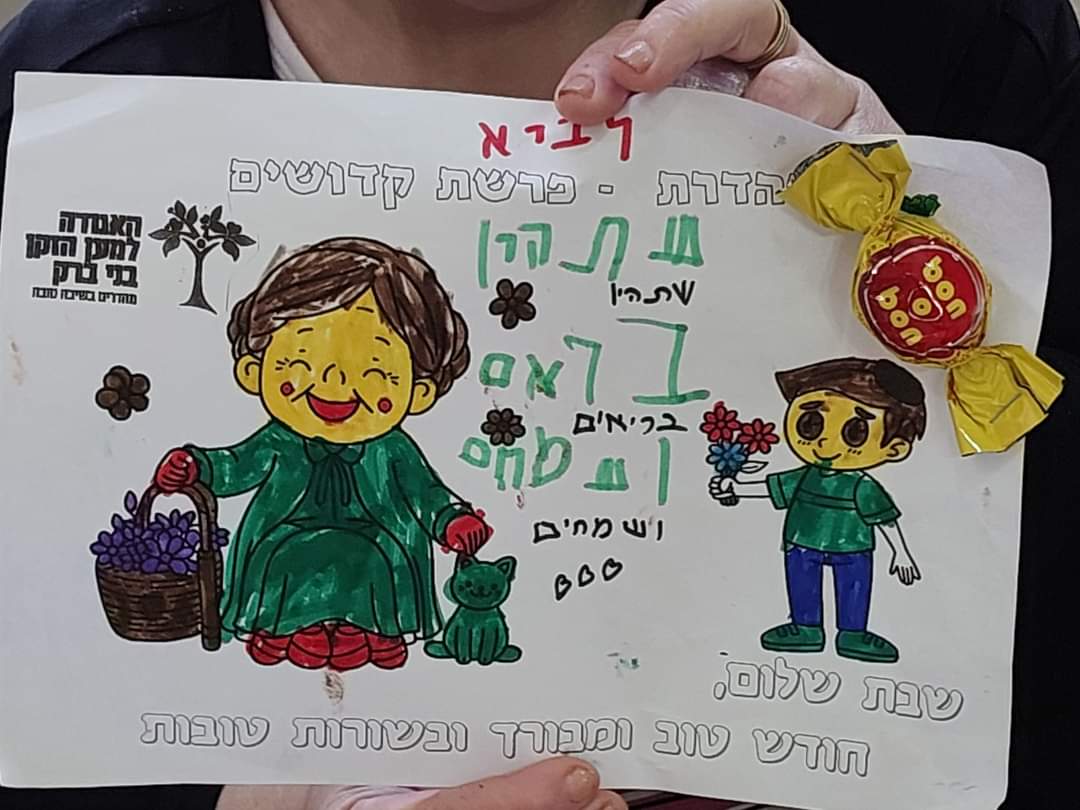 לביא
והדרת - פרשת קדושים
האגודה
למען הזקן
בני ברק
מהדרים בשיבה טובה
שתהיו
שתהיו
בראם
בריאים
ושמחם
ושמחים
bon o bon
שבת שלום,
חודש טוב ומבורך ובשורות טובות